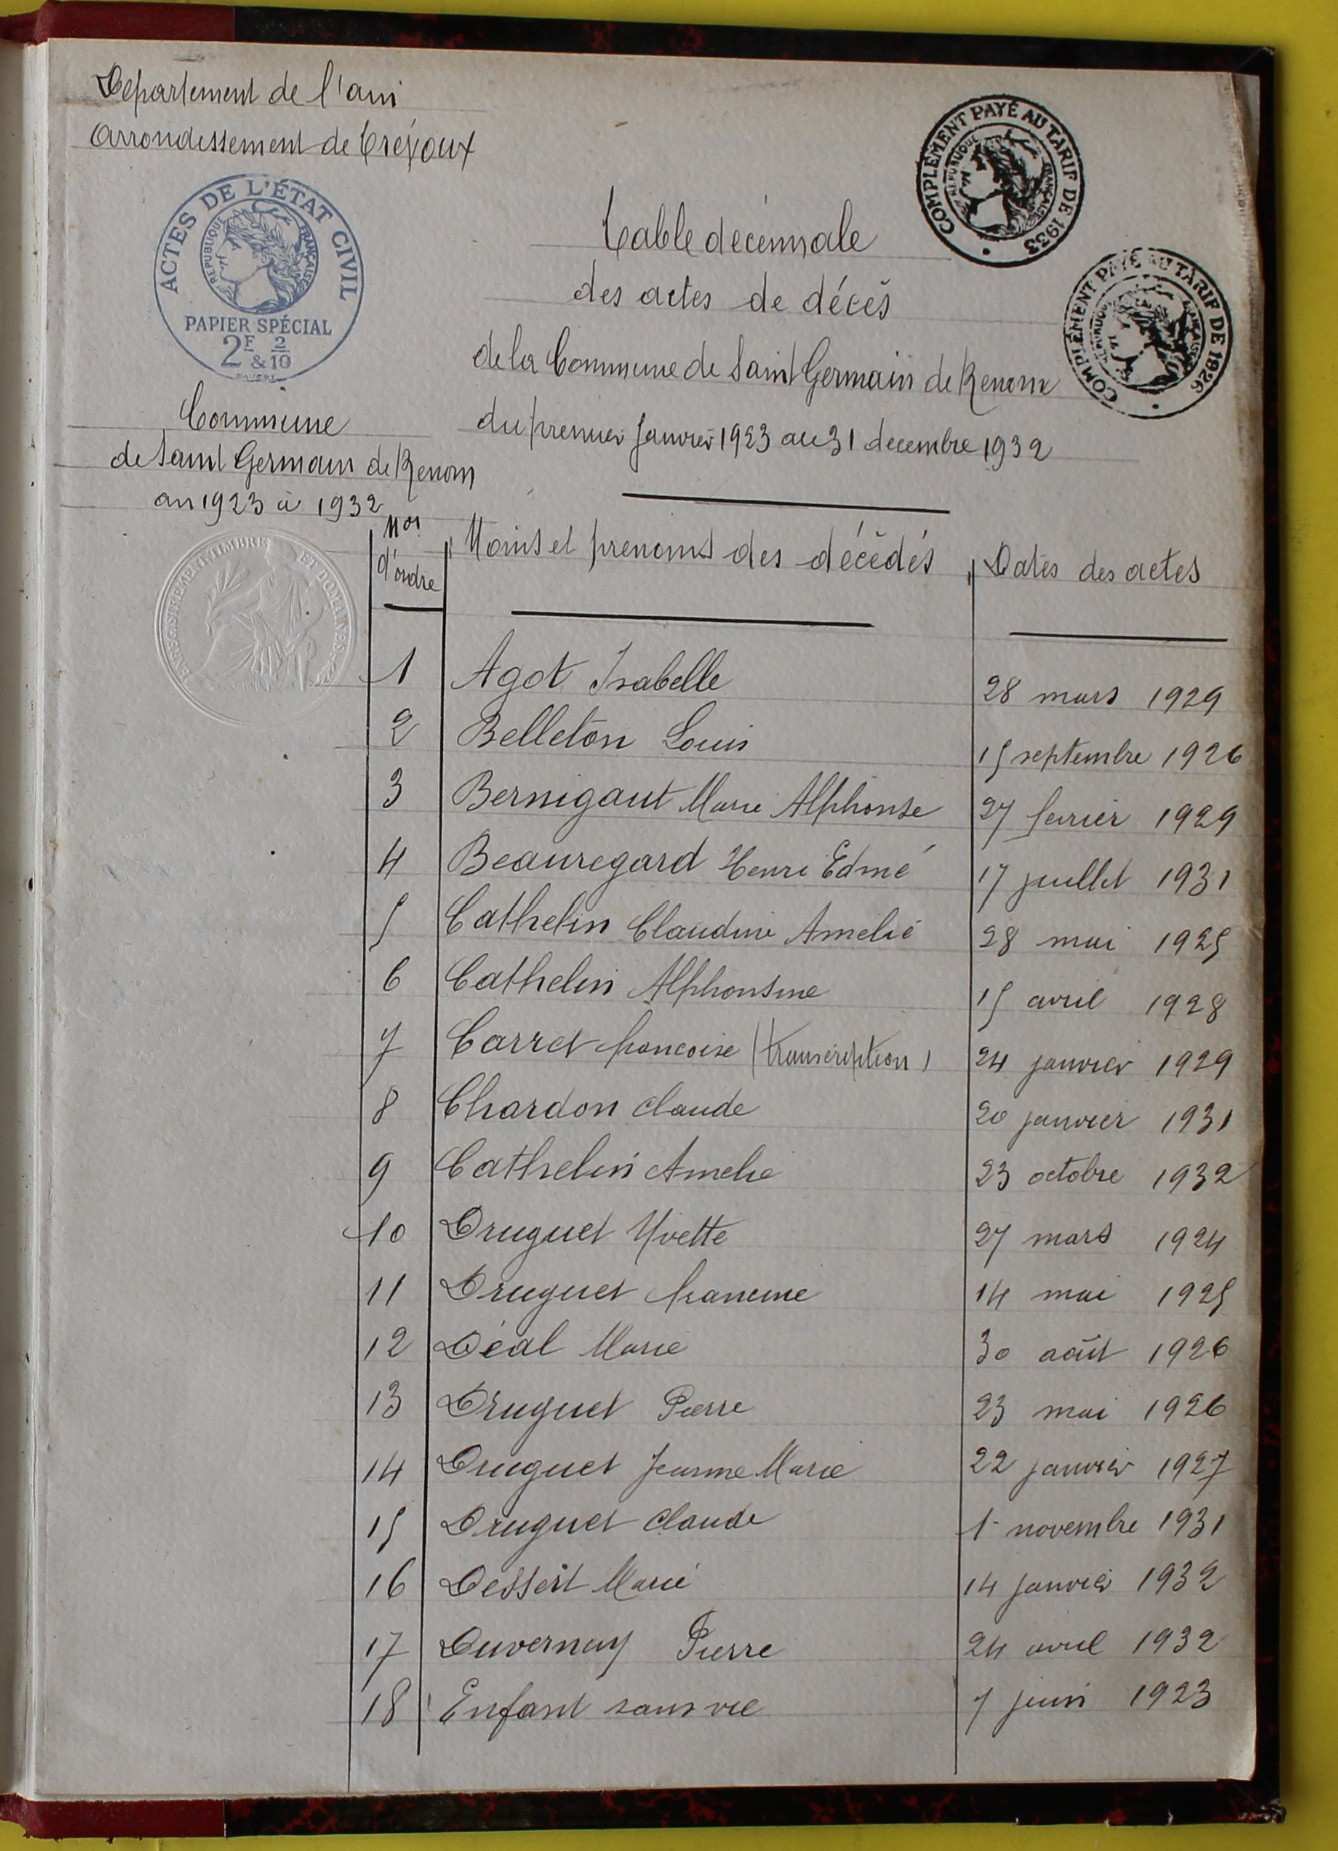 Département de l'ain
Arrondissement de Trévoux
ACTES DE L'ÉTAT CIVIL
RÉPUBLIQUE FRANÇAISE
PAPIER SPÉCIAL
2F & 2/10
COMPLÉMENT PAYÉ AU TARIF DE 1933
RÉPUBLIQUE FRANÇAISE
COMPLÉMENT PAYÉ AU TARIF DE 1926
RÉPUBLIQUE FRANÇAISE
Table décennale
des actes de décès
de la Commune de Saint Germain de Renom
du premier Janvier 1923 au 31 decembre 1932
Commune
de Saint Germain de Renom
an 1923 à 1932
ENREGISSEMENT TIMBRE ET DOMAINES
Nos d'ordre Noms et prenoms des décédés Dates des actes
1 Agot Isabelle 28 mars 1929
2 Belleton Louis 15 septembre 1926
3 Bernigaut Marie Alphonse 27 fevrier 1929
4 Beauregard Henri Edmé 17 juillet 1931
5 Cathelin Claudine Amelie 28 mai 1925
6 Cathelin Alphonsine 15 avril 1928
7 Carret francoise (transcription) 24 janvier 1929
8 Chardon claude 20 janvier 1931
9 Cathelin Amelie 23 octobre 1932
10 Druguet Yvette 27 mars 1924
11 Druguet francine 14 mai 1925
12 Déal Marie 30 août 1926
13 Druguet Pierre 23 mai 1926
14 Druguet Jeanne Marie 22 janvier 1927
15 Druguet claude 1 novembre 1931
16 Dessert Marie 14 janvier 1932
17 Duvernay Pierre 24 avril 1932
18 Enfant sans vie 7 juin 1923